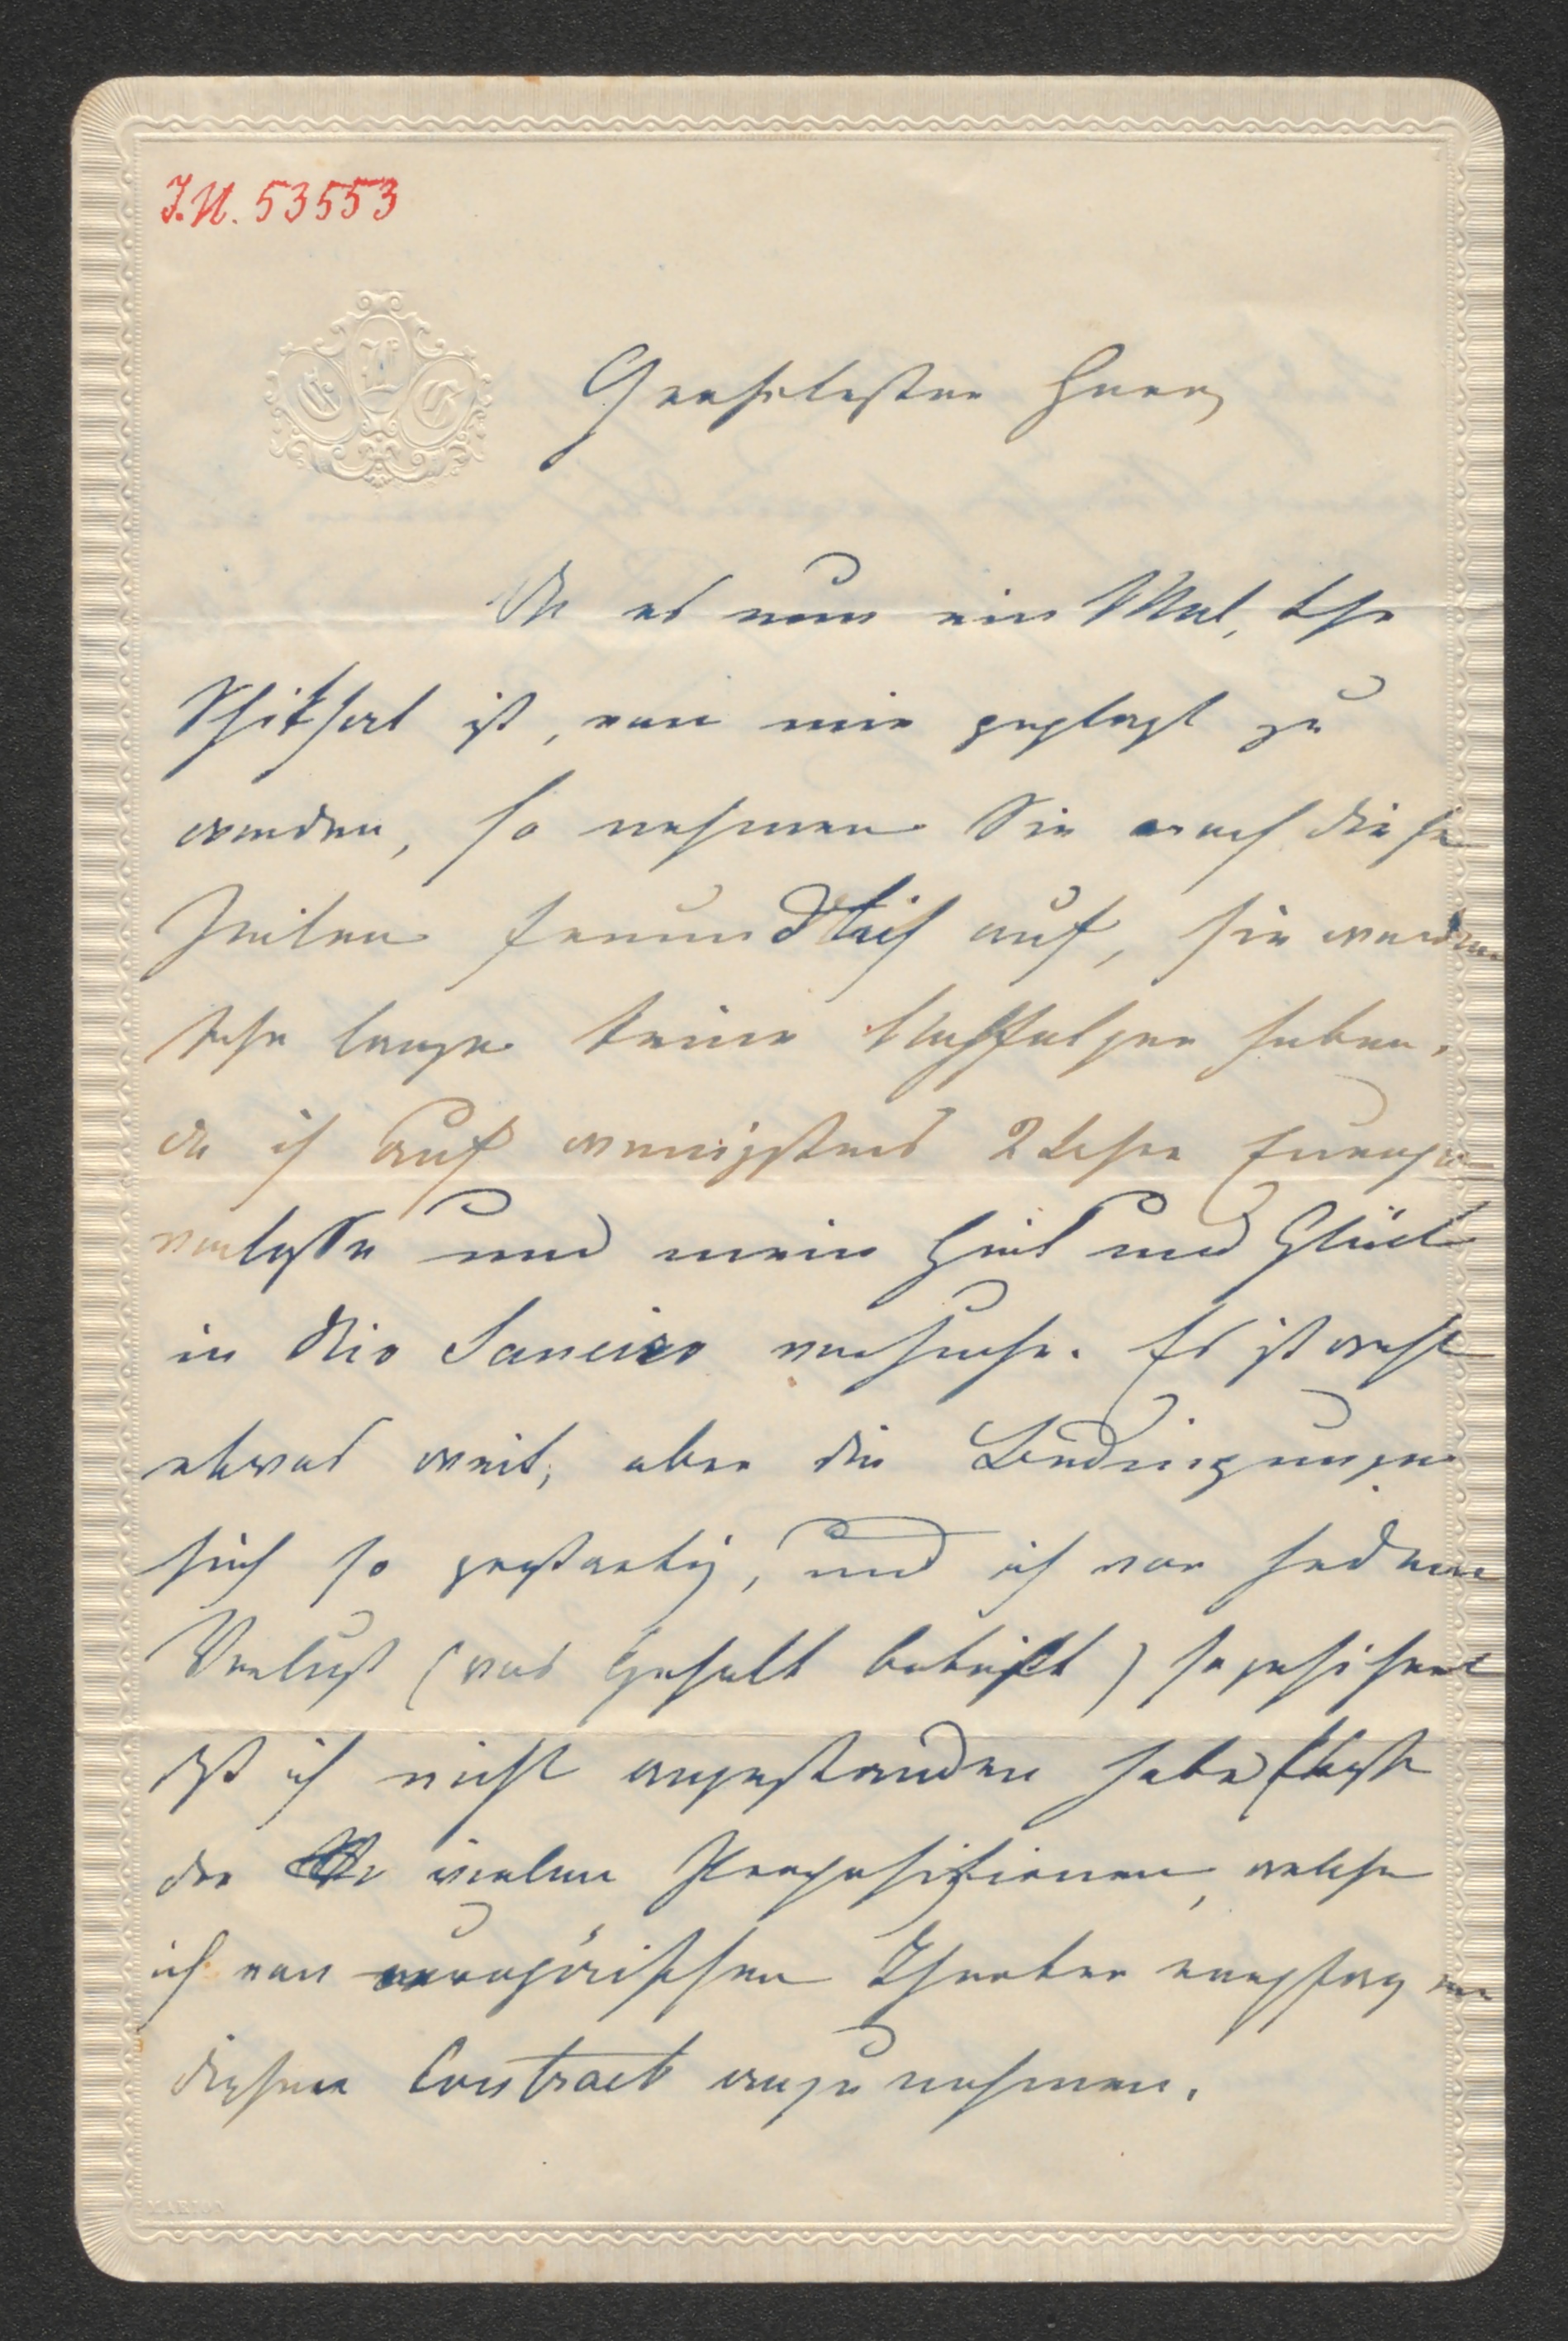 J.N. 53553
E L G
Geehrtester Herr,
Da es nun ein Mal, Ihr
Schiksal ist, von mir geplagt zu
werden, so nehmen Sie auch diese
Zeilen freundlich auf, sie werden
sehr lange keine Nachfolger haben,
da ich auf wenigstens 2 Jahre Europa
verlasse und mein Heil und Glück
in Rio Janeiro versuche. Es ist recht
etwas weit, aber die Bedingungen
sich so großartig, und ich vor jedem
Verlust (was Gehalt betrifft) so gesichert
daß ich nicht angestanden habe
der vielen Propositionen, welche
ich von europäischen Theater empfangen
diesen Contract anzunehmen.